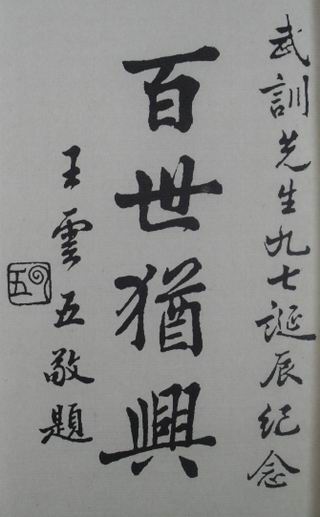 武訓先生九七誕辰紀念
百世猶興
王雲五敬題